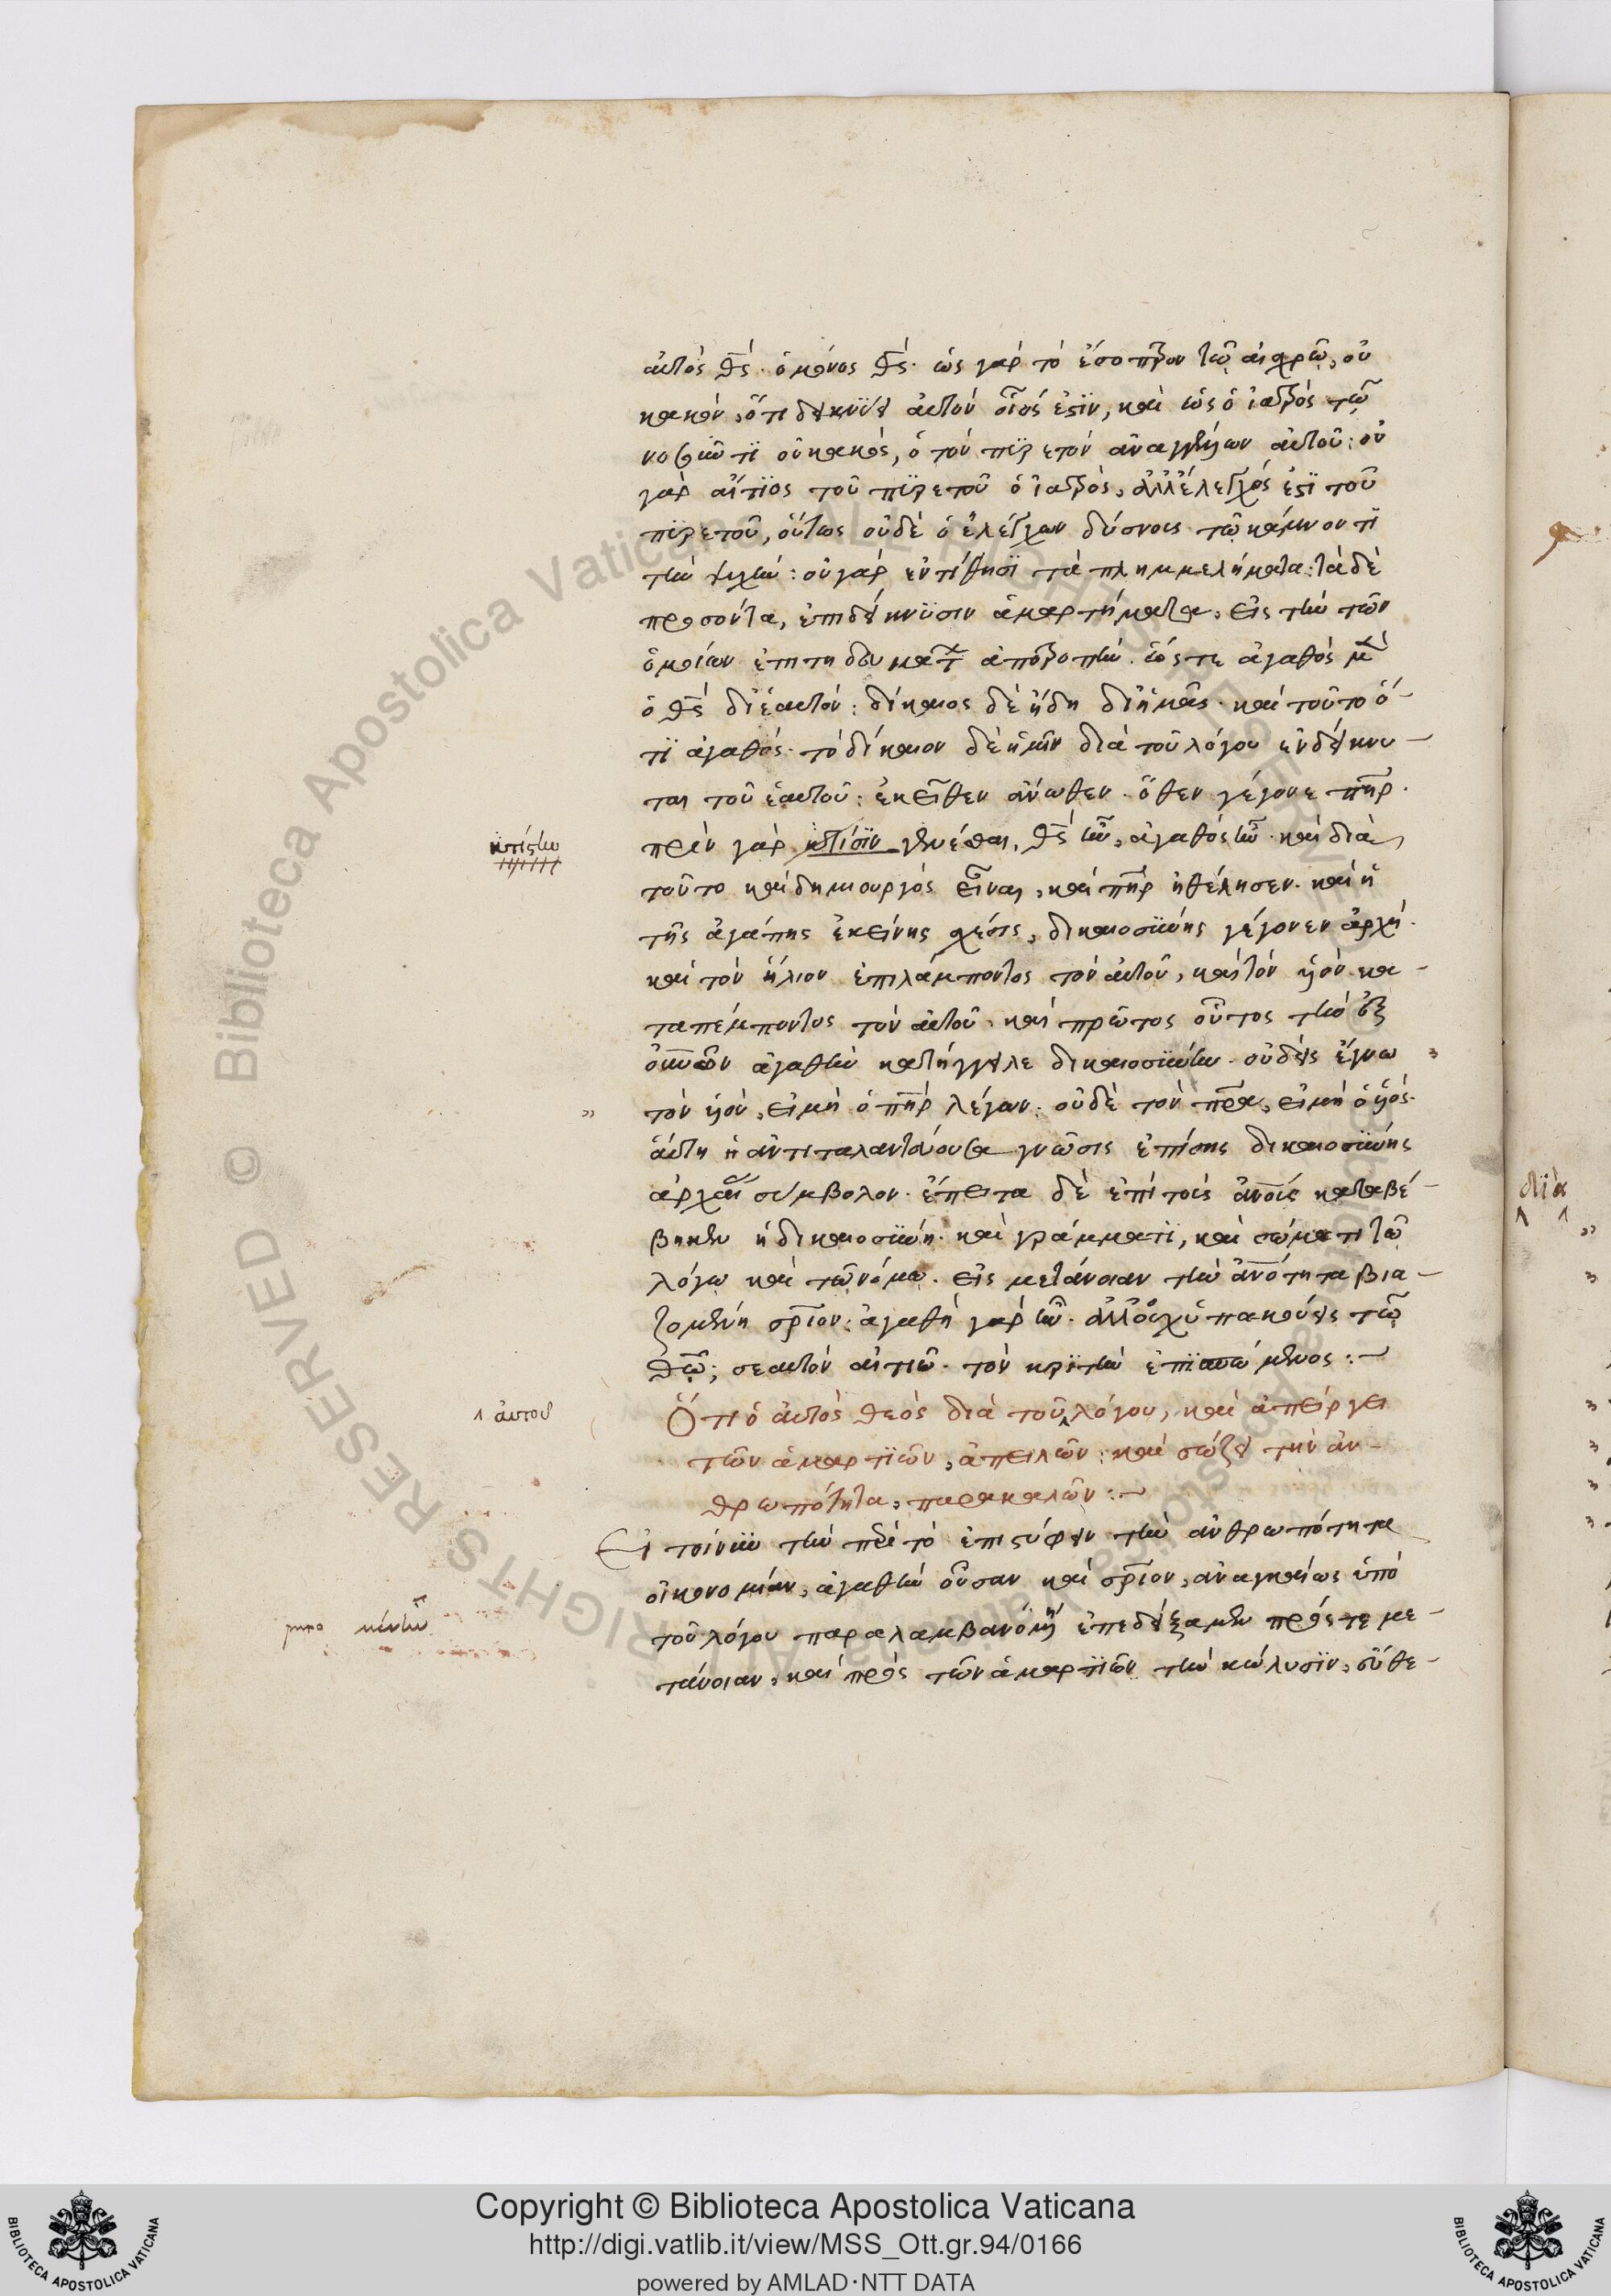 αὐτὸς θς· ὁ μόνος θς· ὡς γὰρ τὸ ἔσοπτρον τῶ αἰσχρῶ, οὐ
κακὸν, ὅτι δεικνύει αὐτὸν οἷός ἐστϊν, καὶ ὡς ὁ ἰατρὸς τῶ
νοσοῦντϊ οὐ κακὸς, ὁ τὸν πϋρετὸν ἀναγγέλων αὐτοῦ: οὐ
γὰρ αἴτϊος τοῦ πϋρετοῦ ὁ ἰατρὸς, ἀλλ' ἔλεγχός ἐστϊ τοῦ
πϋρετοῦ, οὕτως οὐδὲ ὁ ἐλέγχων δύσνους τῶ κάμνοντϊ
τὴν ψυχήν: οὐ γὰρ ἐντίθησϊ τὰ πλημμελήματα: τὰ δὲ
προσόντα, ἐπιδείκνϋσιν ἁμαρτήματα, εἰς τὴν τῶν
ὁμοίων ἐπιτηδευμάτ ἀποτροπήν. ὥστε ἀγαθὸς μὲ
ὁ θς δι' ἑαυτόν: δίκαιος δὲ ἤδη δι' ἡμᾶς· καὶ τοῦτο ὅ-
τϊ ἀγαθός· τὸ δίκαιον δὲ ἡμῖν διὰ τοῦ λόγου ἐνδείκνυ-
ται τοῦ ἑαυτοῦ: ἐκεῖθεν ἄνωθεν· ὅθεν γέγονε πηρ·
πρὶν γὰρ κτίσϊν γενέσθαι, θς ἦν, ἀγαθὸς ἦν· καὶ διὰ
κτίστην
τοῦτο καὶ δημιουργὸς εἶναι, καὶ πηρ ἠθέλησεν· καὶ ἡ
τῆς ἀγάπης ἐκείνης σχέσις, δικαιοσϋνης γέγονεν ἀρχή·
καὶ τὸν ἥλιον ἐπιλάμποντος τὸν αὐτοῦ, καὶ τὸν υἱὸν κα-
ταπέμποντος τὸν αὐτοῦ· καὶ πρῶτος οὗτος τὴν ἐξ
οὐνῶν ἀγαθὴν κατήγγειλε δικαιοσύνην· οὐδεὶς ἔγνω
τὸν υἱὸν, εἰ μὴ ὁ πηρ λέγων· οὐδὲ τὸν πρα, εἰ μὴ ὁ υἱός·
αὕτη ἡ ἀντιταλαντεύουσα γνῶσις ἐπίσης δικαιοσϋνης
ἀρχαί σύμβολον· ἔπειτα δὲ ἐπὶ τοῖς ἀνοις καταβέ-
βηκεν ἡ δικαιοσϋνη· καὶ γράμματϊ, καὶ σώματι τῶ
λόγω καὶ τῶ νόμω· εἰς μετάνοιαν τὴν ἀνότητα βια-
ζομένη σριον: ἀγαθὴ γὰρ ἦν· ἀλλ' οὐχ ὑπακούεις τῶ
θῶ; σεαυτὸν αἰτιῶ· τὸν κριτὴν ἐπϊσπώμενος :~
Ὅτι ὁ αὐτὸς θεὸς διὰ τοῦ λόγου, καὶ ἀπείργει
αὐτοῦ
τῶν ἁμαρτϊῶν, ἀπειλῶν: καὶ σώζει τὴν ἀν-
θρωπότητα, παρακαλῶν :~
Εἰ τοίνυν τὴν περὶ τὸ ἐπιστύφειν τὴν ἀνθρωπότητα
οἰκονομίαν, ἀγαθὴν οὖσαν καὶ σριον, ἀναγκαίως ὑπὸ
τοῦ λόγου παραλαμβανόμη ἐπεδείξαμεν πρός τε με-
τάνοιαν, καὶ πρὸς τῶν ἁμαρτϊῶν τὴν κώλυσϊν, εὔθε-
διϊὰ
Copyright © Biblioteca Apostolica Vaticana
http://digi.vatlib.it/view/MSS_Ott.gr.94/0166
powered by AMLAD·NTT DATA